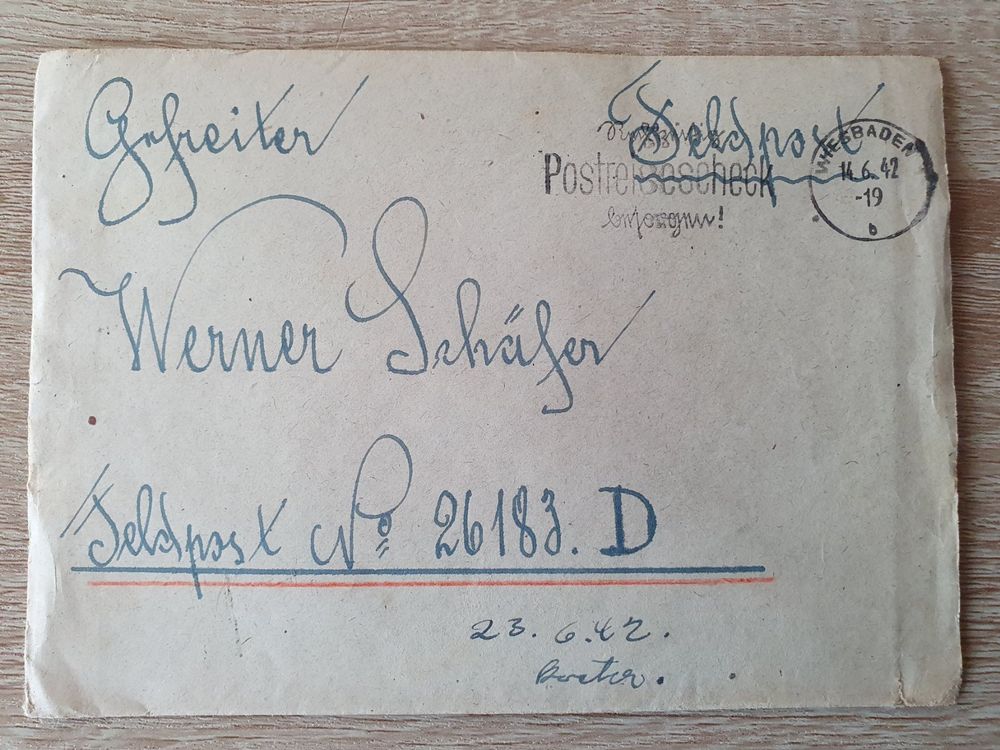 Gefreiter
Feldpost
Rechtzeitig
Postreisescheck
besorgen!
WIESBADEN
14.6.42
-19
b
Werner Schäfer
Feldpost No 26183. D
23.6.42.